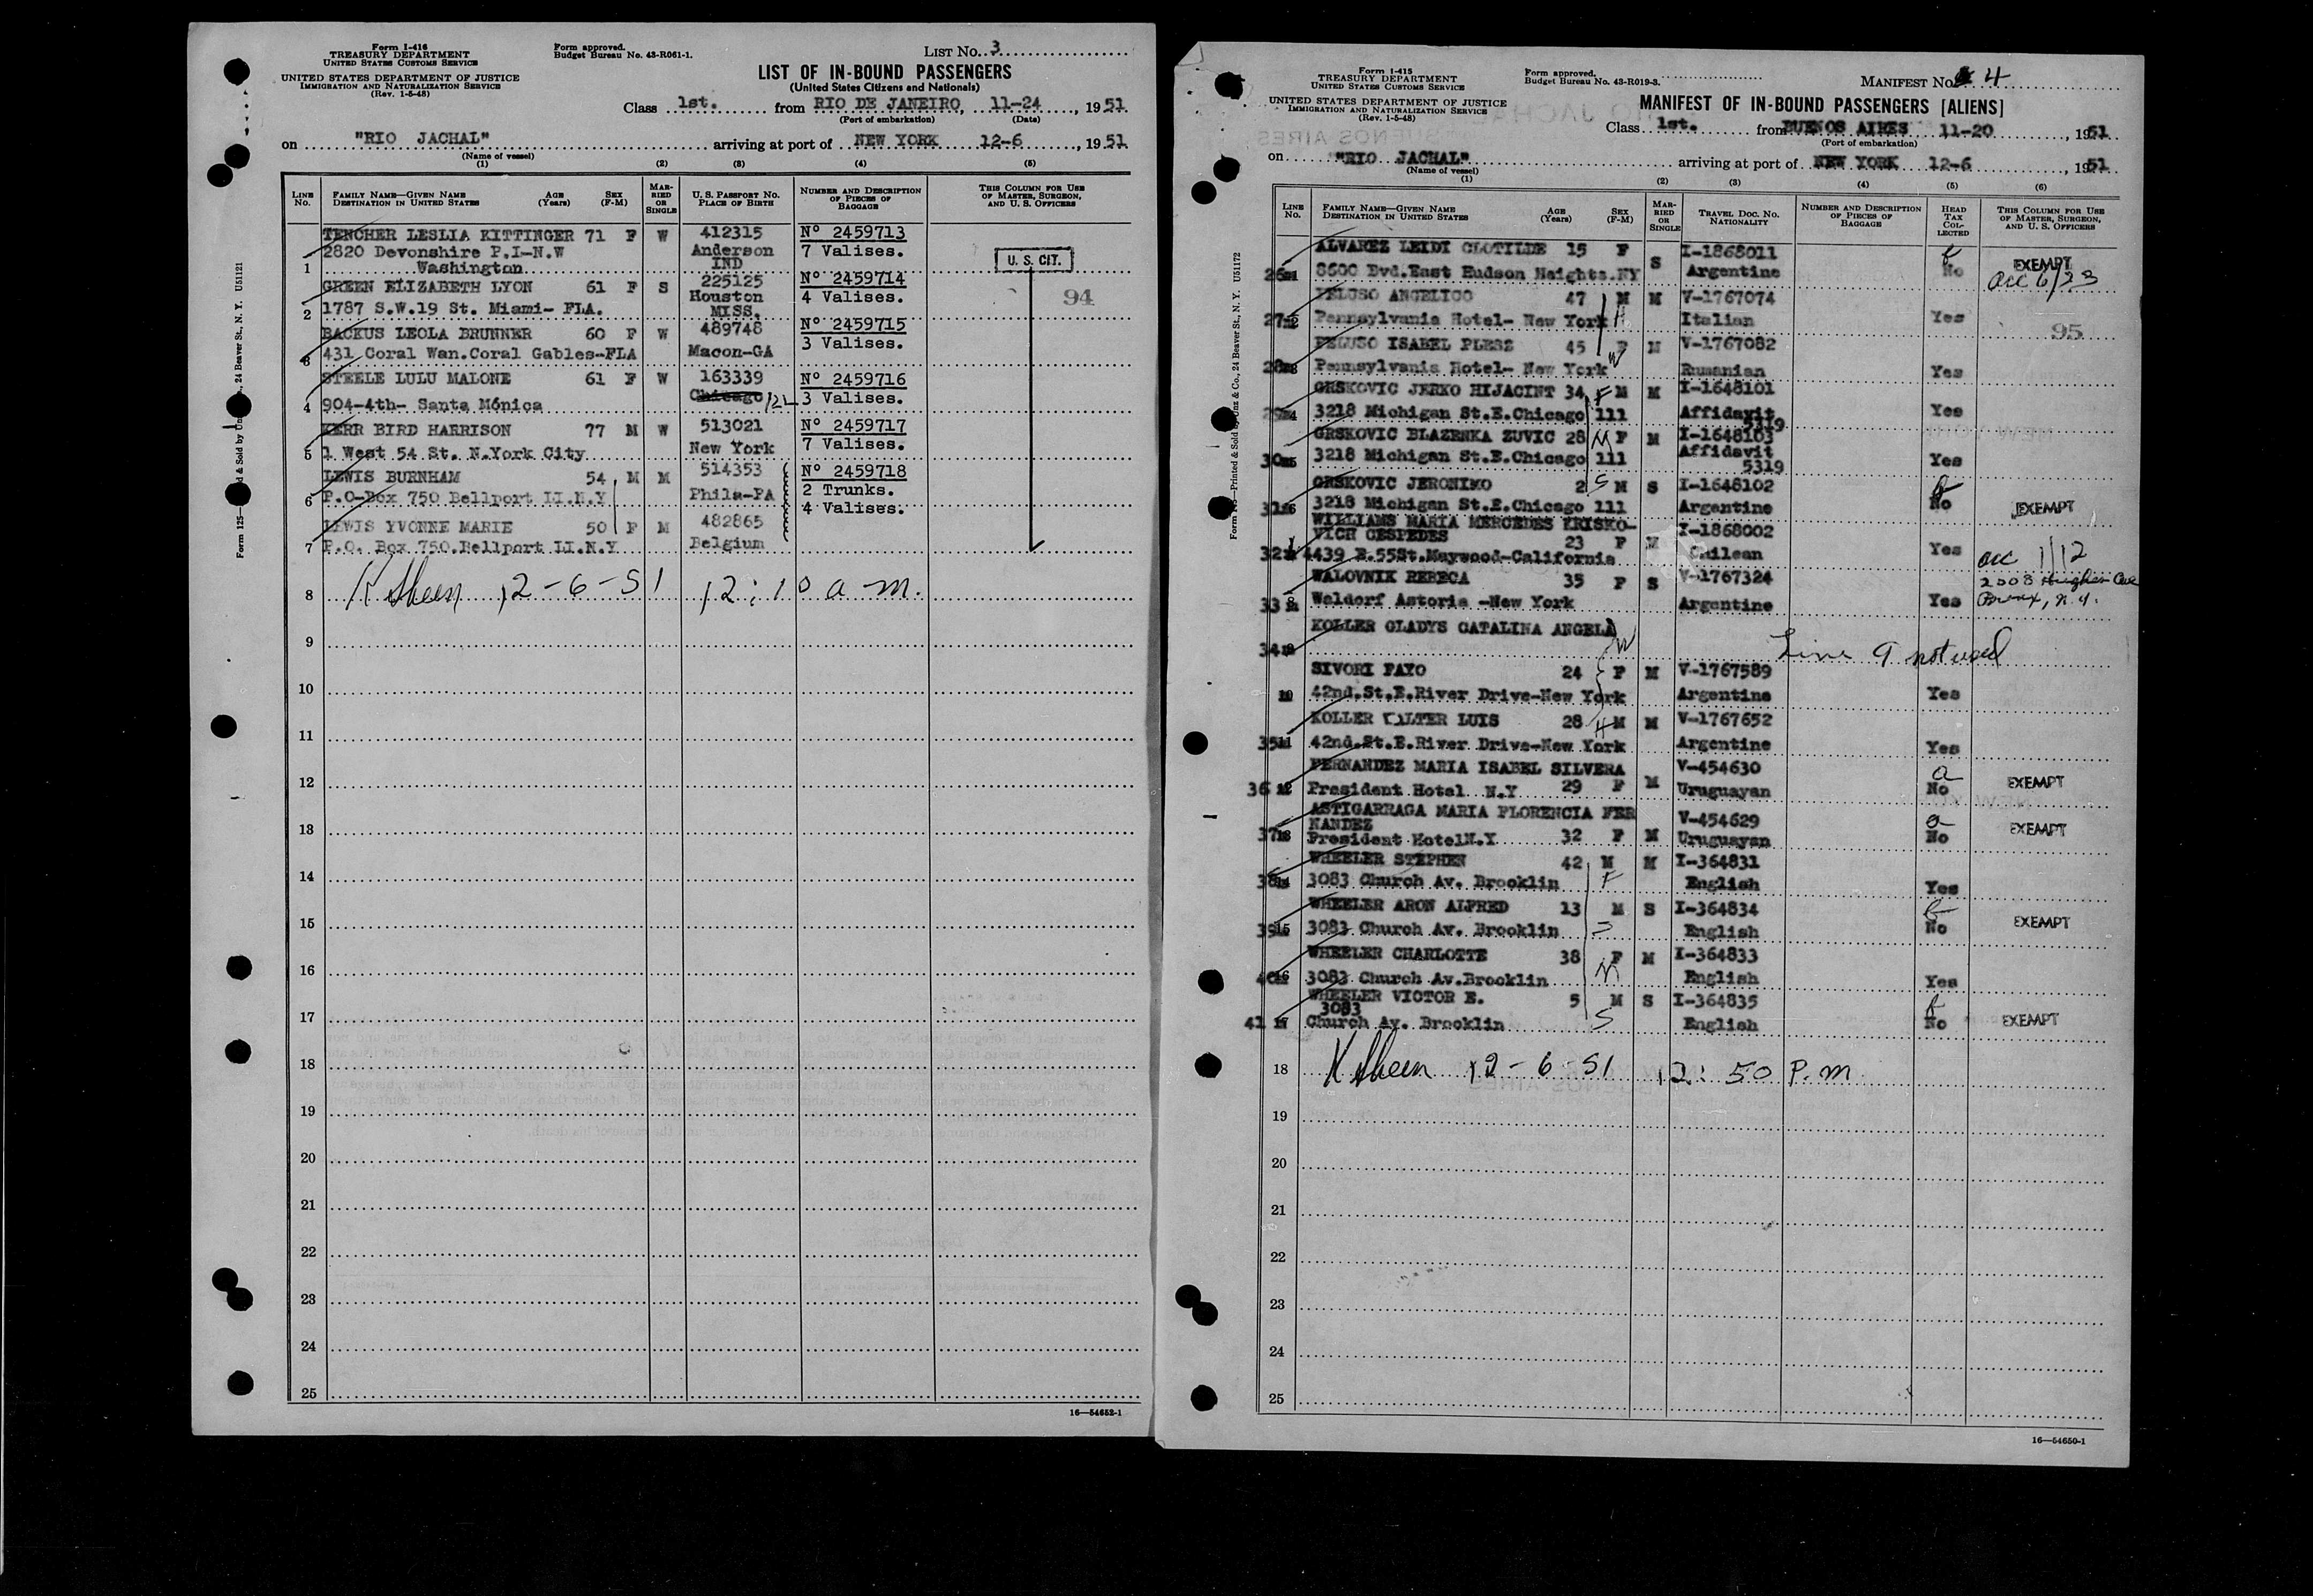 Form I-416
TREASURY DEPARTMENT
UNITED STATES CUSTOMS SERVICE
UNITED STATES DEPARTMENT OF JUSTICE
IMMIGRATION AND NATURALIZATION SERVICE
(Rev. 1-5-48)
Form approved.
Budget Bureau No. 43-R061-1.
LIST No. 3
LIST OF IN-BOUND PASSENGERS
(United States Citizens and Nationals)
Class 1st. from RIO DE JANEIRO, 11-24, 1951
(Port of embarkation) (Date)
on "RIO JACHAL" arriving at port of NEW YORK 12-6, 1951
(Name of vessel)
(1) (2) (3) (4) (5)
LINE No. FAMILY NAME—GIVEN NAME DESTINATION IN UNITED STATES AGE (Years) SEX (F-M) MARRIED OR SINGLE U. S. PASSPORT NO. PLACE OF BIRTH NUMBER AND DESCRIPTION OF PIECES OF BAGGAGE THIS COLUMN FOR USE OF MASTER, SURGEON, AND U. S. OFFICERS
TENCHER LESLIA KITTINGER 71 F W 412315 Nº 2459713
2820 Devonshire P.I-N.W Anderson 7 Valises.
1 Washington IND
U. S. CIT.
GREEN ELIZABETH LYON 61 F S 225125 Nº 2459714
Houston 4 Valises. 94
2 1787 S.W.19 St. Miami- FLA. MISS.
BACKUS LEOLA BRUNNER 60 F W 489748 Nº 2459715
3 Valises.
3 431 Coral Wan.Coral Gables-FLA Macon-GA
STEELE LULU MALONE 61 F W 163339 Nº 2459716
4 904-4th- Santa Mónica Chicago 3 Valises.
KERR BIRD HARRISON 77 M W 513021 Nº 2459717
5 1 West 54 St. N.York City New York 7 Valises.
LEWIS BURNHAM 54 M M 514353 Nº 2459718
6 P.O-Box 750 Bellport II.N.Y Phila-PA 2 Trunks.
4 Valises.
LEWIS YVONNE MARIE 50 F M 482865
7 P.O. Box 750.Bellport II.N.Y Belgium
8 K Sheen 12-6-51 12:10 a.m.
9
10
11
12
13
14
15
16
17
18
19
20
21
22
23
24
25
16—54652-1
Form I-415
TREASURY DEPARTMENT
UNITED STATES CUSTOMS SERVICE
UNITED STATES DEPARTMENT OF JUSTICE
IMMIGRATION AND NATURALIZATION SERVICE
(Rev. 1-5-48)
Form approved.
Budget Bureau No. 43-R019-3.
MANIFEST No. 4
MANIFEST OF IN-BOUND PASSENGERS [ALIENS]
Class 1st. from BUENOS AIRES 11-20, 1951
(Port of embarkation)
on "RIO JACHAL" arriving at port of NEW YORK 12-6, 1951
(Name of vessel)
(1) (2) (3) (4) (5) (6)
LINE No. FAMILY NAME—GIVEN NAME DESTINATION IN UNITED STATES AGE (Years) SEX (F-M) MARRIED OR SINGLE TRAVEL DOC. NO. NATIONALITY NUMBER AND DESCRIPTION OF PIECES OF BAGGAGE HEAD TAX COLLECTED THIS COLUMN FOR USE OF MASTER, SURGEON, AND U. S. OFFICERS
ALVAREZ LEIDI CLOTILDE 15 F S I-1868011 EXEMPT
26 8600 Bvd.East Hudson Heights.NY Argentine No
PELUSO ANGELICO 47 M M V-1767074
27 Pennsylvania Hotel- New York H Italian Yes 95
PELUSO ISABEL PLESZ 45 F M V-1767082
28 Pennsylvania Hotel- New York W Rumanian Yes
GRSKOVIC JERKO HIJACINT 34 F M M I-1648101
3218 Michigan St.E.Chicago lll Affidavit 5319 Yes
GRSKOVIC BLAZENKA ZUVIC 28 M F M I-1648103
30 3218 Michigan St.E.Chicago lll Affidavit 5319 Yes
GRSKOVIC JERONIMO 2 S M S I-1648102
31 3218 Michigan St.E.Chicago lll Argentine No EXEMPT
WILLIAMS MARIA MERCEDES KRISKO-
VICH CESPEDES 23 F M I-1868002
32 4439 E.55St.Maywood-California Chilean Yes acc 1/12
WALOVNIK REBECA 35 F S V-1767324 2008 Hughes Ave
33 Waldorf Astoria -New York Argentine Yes Bronx, N.Y.
KOLLER GLADYS CATALINA ANGELA W
34 Line 9 not used
SIVORI FAYO 24 F M V-1767589
10 42nd.St.E.River Drive-New York Argentine Yes
KOLLER WALTER LUIS 28 H M M V-1767652
35 11 42nd.St.E.River Drive-New York Argentine Yes
FERNANDEZ MARIA ISABEL SILVERA V-454630
36 12 President Hotel N.Y 29 F M Uruguayan No EXEMPT
ASTIGARRAGA MARIA FLORENCIA FER
NANDEZ V-454629
37 13 President HotelN.Y 32 F M Uruguayan No EXEMPT
WHEELER STEPHEN 42 M M I-364831
38 14 3083 Church Av. Brocklin F English Yes
WHEELER ARON ALFRED 13 M S I-364834
39 15 3083 Church Av. Brocklin S English No EXEMPT
WHEELER CHARLOTTE 38 F M I-364833
40 16 3083 Church Av.Brocklin M English Yes
WHEELER VICTOR E. 5 M S I-364835
3083
41 17 Church Av. Brocklin S English No EXEMPT
18 K Sheen 12-6-51 12:50 P.m
19
20
21
22
23
24
25
16—54650-1